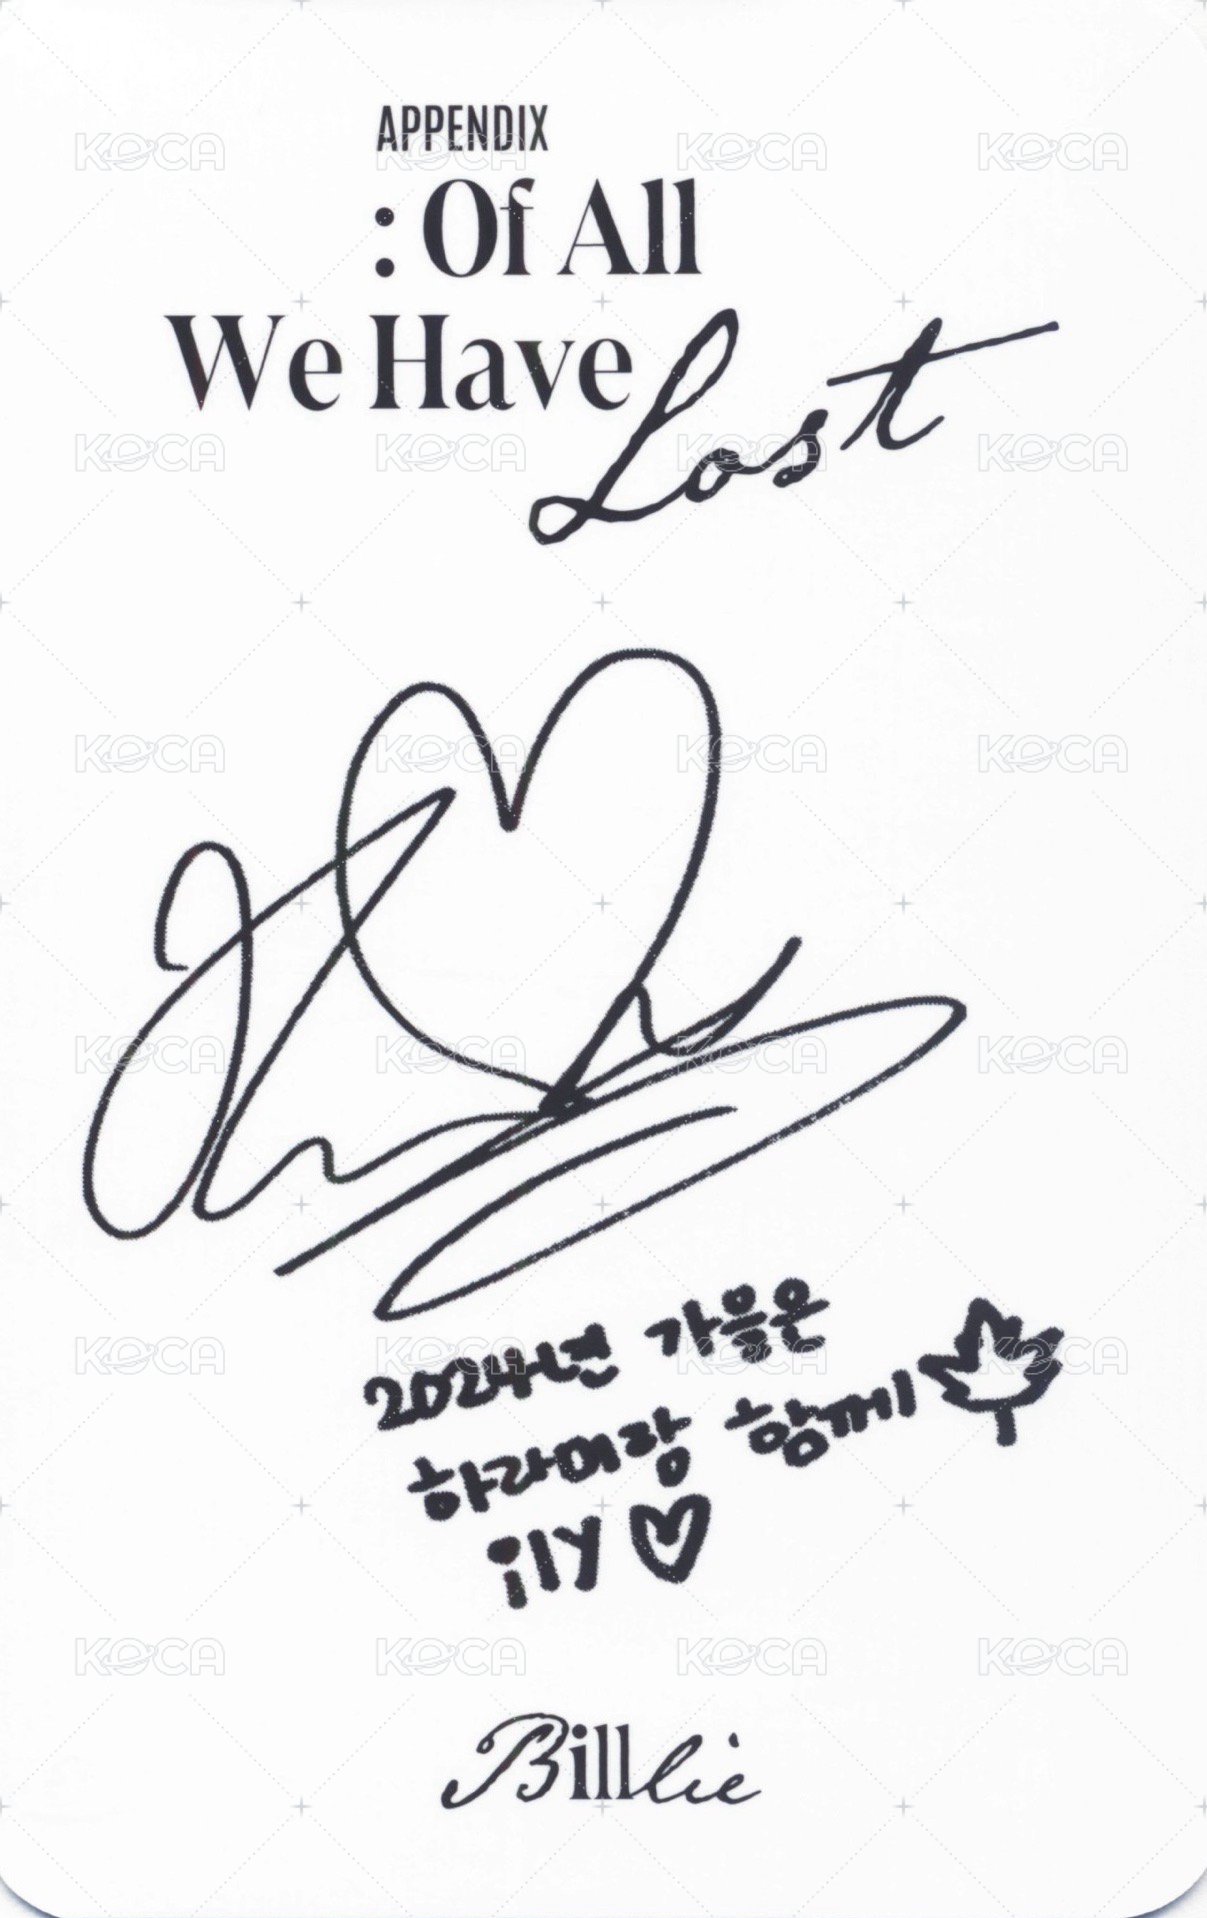 APPENDIX
: Of All
We Have Lost
2024년 가을은
하라메랑 함께
ily
Billlie
KOCA